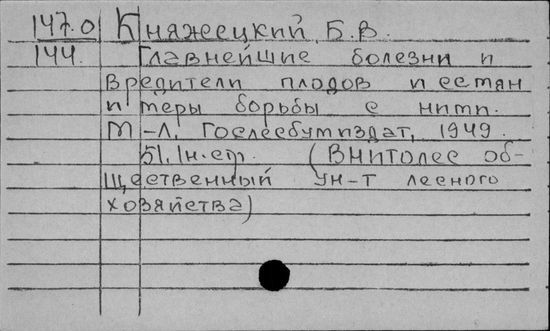 147.0 Княжецкий, Б.В.
144. Главнейшие болезни и
вредители плодов и семян
и меры борьбы с ними.
М-Л, Гослесбумиздат, 1949.
51.1н.стр. (ВНИТОлес об-
щественный ун-т лесного
хозяйства)